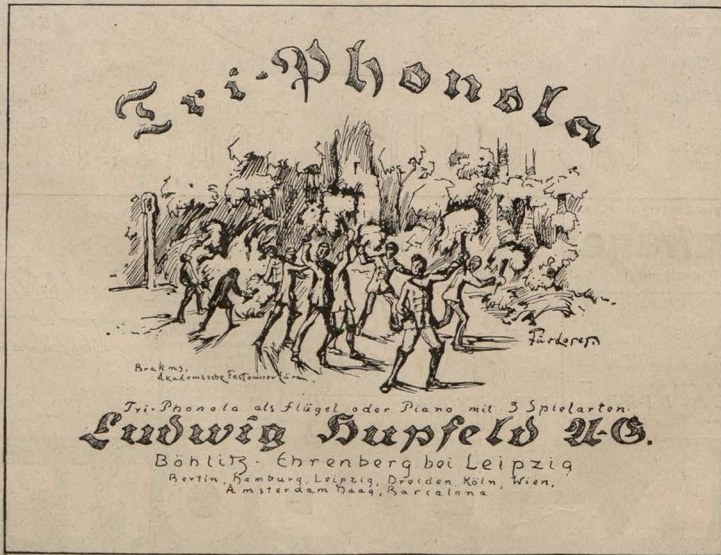 Tri-Phonola
Brahms,
Akademische Festouvertüre.
Tri-Phonola als Flügel oder Piano mit 3 Spielarten.
Ludwig Hupfeld A-G.
Böhlitz-Ehrenberg bei Leipzig
Berlin, Hamburg, Leipzig, Dresden, Köln, Wien,
Amsterdam, Haag, Barcalona